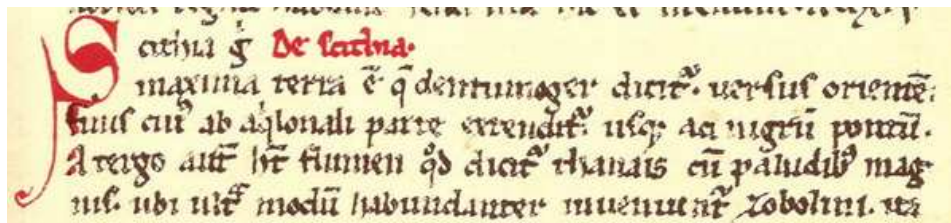 Scithia g̃ De scithia.
maxima terra ẽ q̃ dentumoger dicit᷑. uersus orientẽ.
finis cui᷒ ab aq̍lonali parte extendit᷑ usq; ad nigrũ pontũ.
A tergo aut̃ ht̃ flumen q̊d dicit᷑ thanais cũ paludib᷒ mag
nis. ubi ult᷑ modũ habundanter inueniũt᷑ zobolini. ita